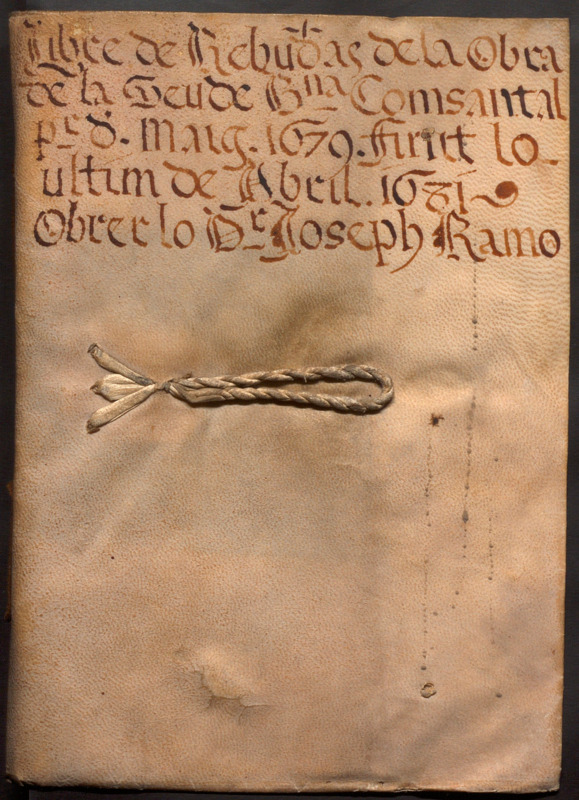 Llibre de Rebudas de la Obra
de la Seu de Bna Comsantal
pr d. Maig. 1679. finit lo
ultim de Abril. 1681
Obrer lo Dr. Joseph Ramo